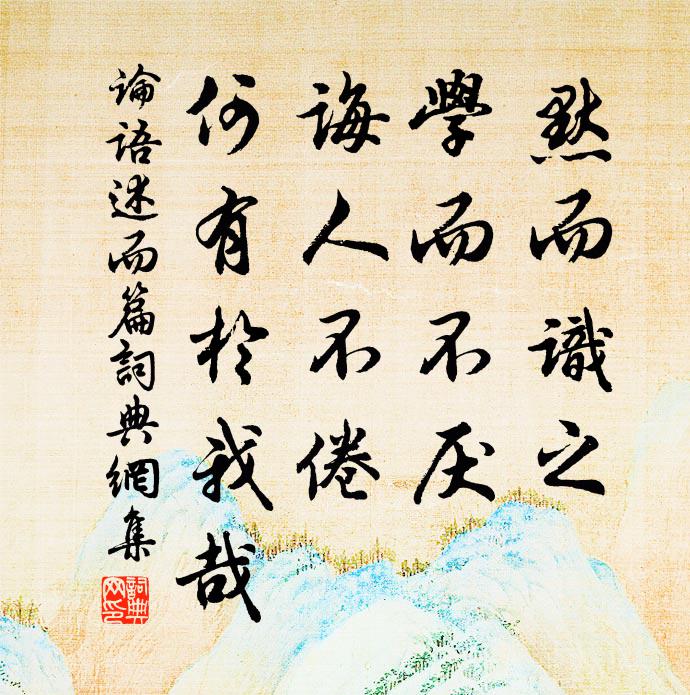 黙而識之
學而不厌
誨人不倦
何有於我哉
論語述而篇詞典網集
詞典
网印